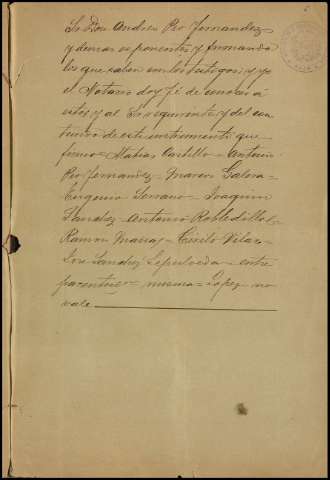 Sr Don Andres Pio Fernandez
y demas exponentes y firmando
los que saben con los testigos y yo
el Notario doy fé de conocer á
estos y al Sr requirente y del con-
tenido de este instrumento que
firmo = Matias Castillo = Antonio
Pio Fernandez = Marcos Galera =
Eugenio Serrano = Joaquin
Sanchez = Antonio Robledillo =
Ramon Masias = Cirilo Vilar =
Jose Sanchez Sepulveda = entre
parentesis = misma = Lopez = no
vale